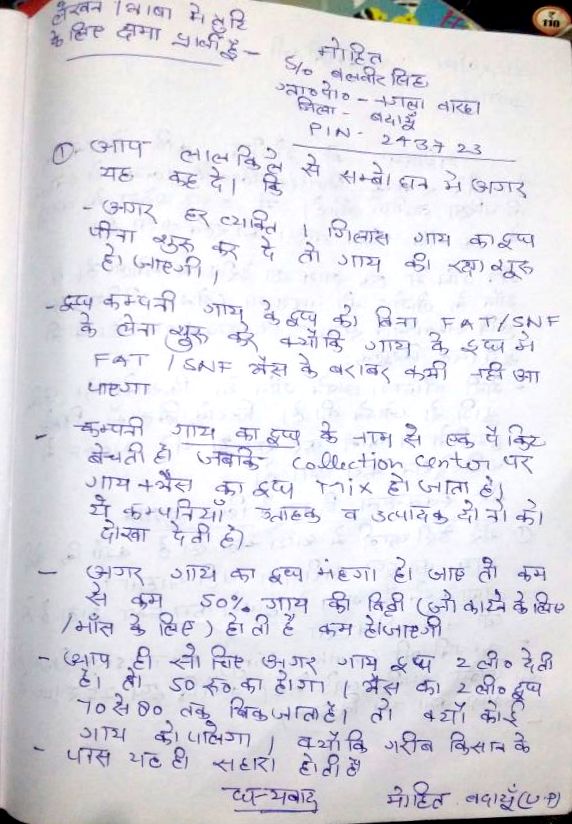 लेखन / भाषा में त्रुटि
के लिए क्षमा प्रार्थी हूँ -
मोहित
S/o बलवीर सिंह
ग्रा० पो० - नगला बारहा
जिला - बदायूँ
PIN - 243723
① आप लाल किले से सम्बोधन में अगर
यह कह दे। कि
- अगर हर व्यक्ति 1 गिलास गाय का दूध
पीना शुरू कर दे तो गाय की रक्षा शुरू
हो जाएगी।
- दूध कम्पनी गाय के दूध को बिना FAT/SNF
के लेना शुरू करे क्योंकि गाय के दूध में
FAT / SNF भैंस के बराबर कभी नही आ
पाएगा
- कम्पनी गाय का दूध के नाम से एक पैकिट
बेचती है। जबकि collection center पर
गाय + भैंस का दूध mix हो जाता है।
ये कम्पनियाँ ग्राहक व उत्पादक दोनो को
धोखा देती है।
- अगर गाय का दूध मंहगा हो जाए तो कम
से कम 50% गाय की बिक्री (जो काटने के लिए
/ माँस के लिए) होती है कम हो जाएगी
- आप ही सोचिए अगर गाय दूध 2 ली० देती
है। तो 50 रू० का होगा। भैंस का 2 ली० दूध
70 से 80 तक बिक जाता है। तो क्यों कोई
गाय को पालेगा। क्योंकि गरीब किसान के
- पास यह ही सहारा होती है
धन्यबाद
मोहित बदायूँ (U.P)
110